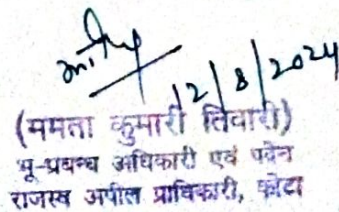 12/8/2024
(ममता कुमारी तिवारी)
भू-प्रबन्ध अधिकारी एवं पदेन
राजस्व अपील प्राधिकारी, कोटा